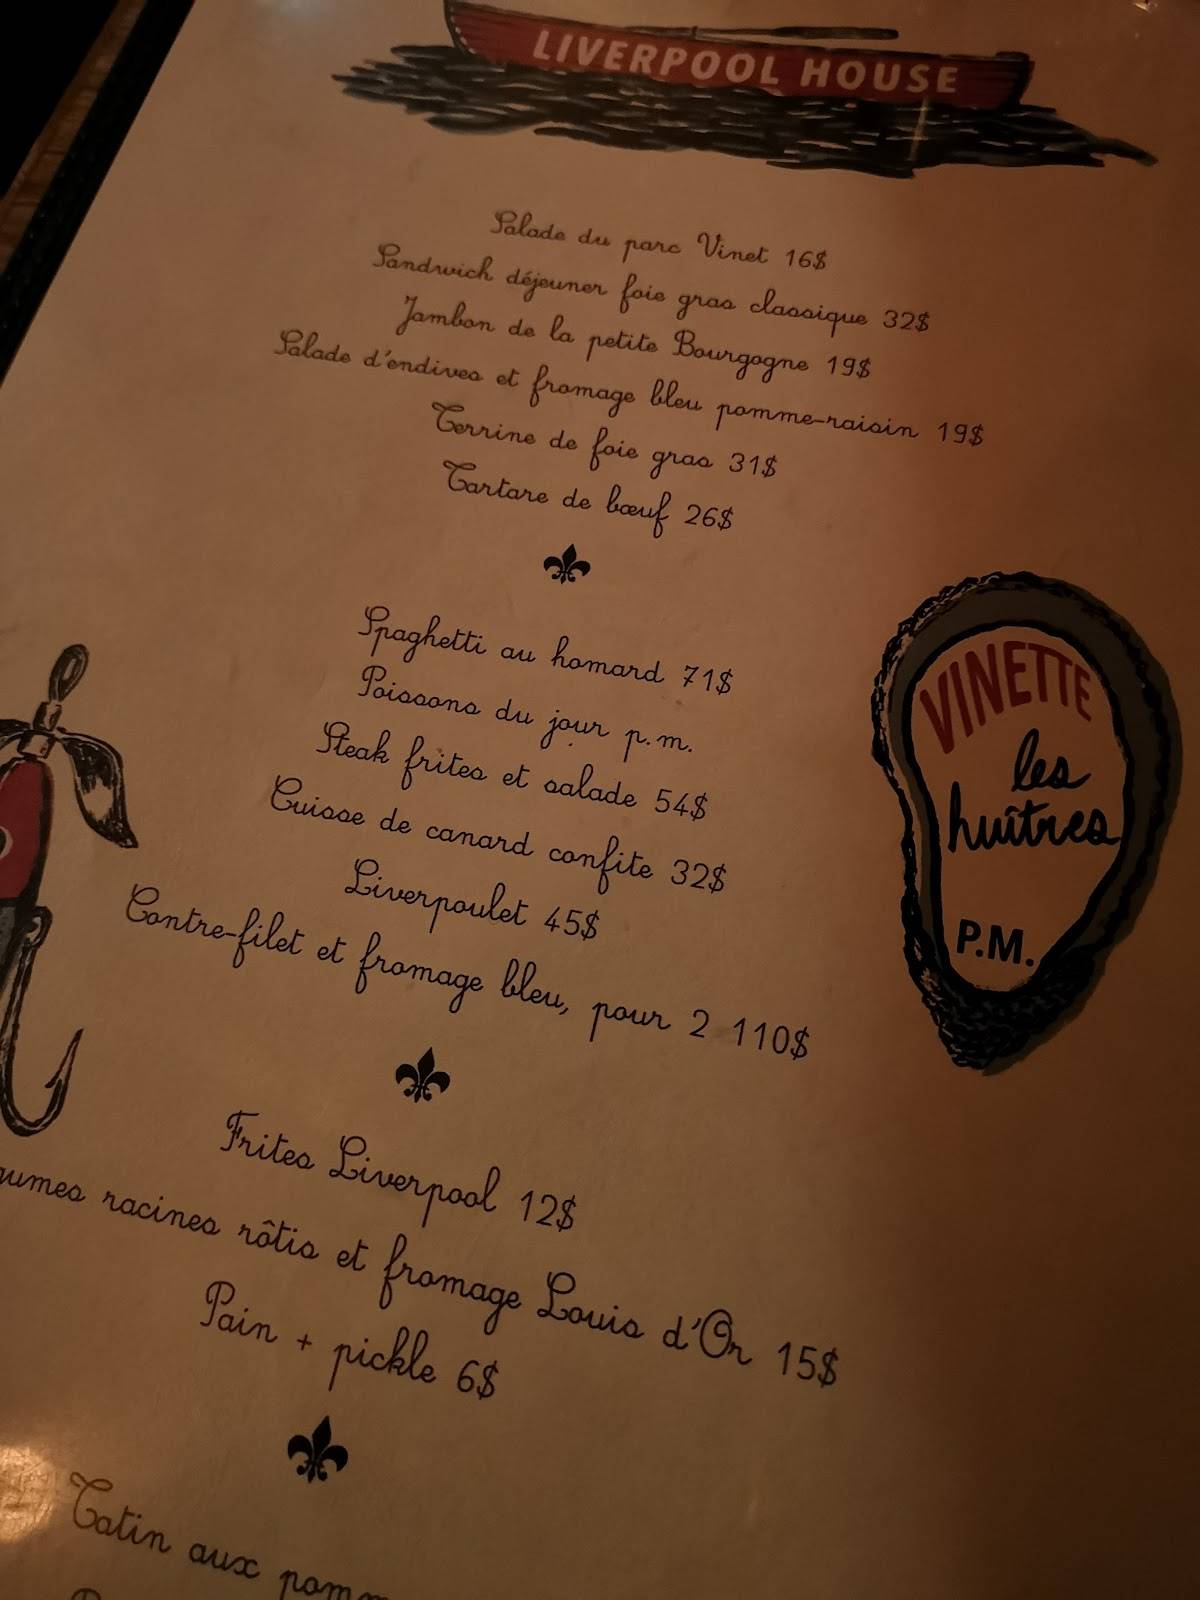 LIVERPOOL HOUSE
Salade du parc Vinet 16$
Sandwich déjeuner foie gras classique 32$
Jambon de la petite Bourgogne 19$
Salade d'endives et fromage bleu pomme-raisin 19$
Terrine de foie gras 31$
Tartare de bœuf 26$
Spaghetti au homard 71$
Poissons du jour p.m.
Steak frites et salade 54$
Cuisse de canard confite 32$
Liverpoulet 45$
Contre-filet et fromage bleu, pour 2 110$
VINETTE
les
huîtres
P.M.
Frites Liverpool 12$
gumes racines rôtis et fromage Louis d'Or 15$
Pain + pickle 6$
Tatin aux pomm